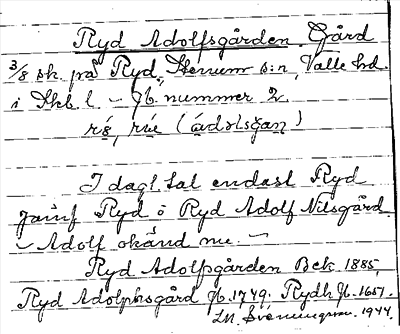 Ryd Adolfsgården Gård
3/8 sk. på Ryd, Stenum s:n, Valle hd.
i Skb. l. - Jb. nummer 2.
I dagl. tal endast Ryd
Jämf Ryd o Ryd Adolf Nilsgård
- Adolf okänd nu. -
Ryd Adolfsgården Bek. 1885,
Ryd Adolphsgård Jb. 1749; Rydh Jb. 1651.
1944.